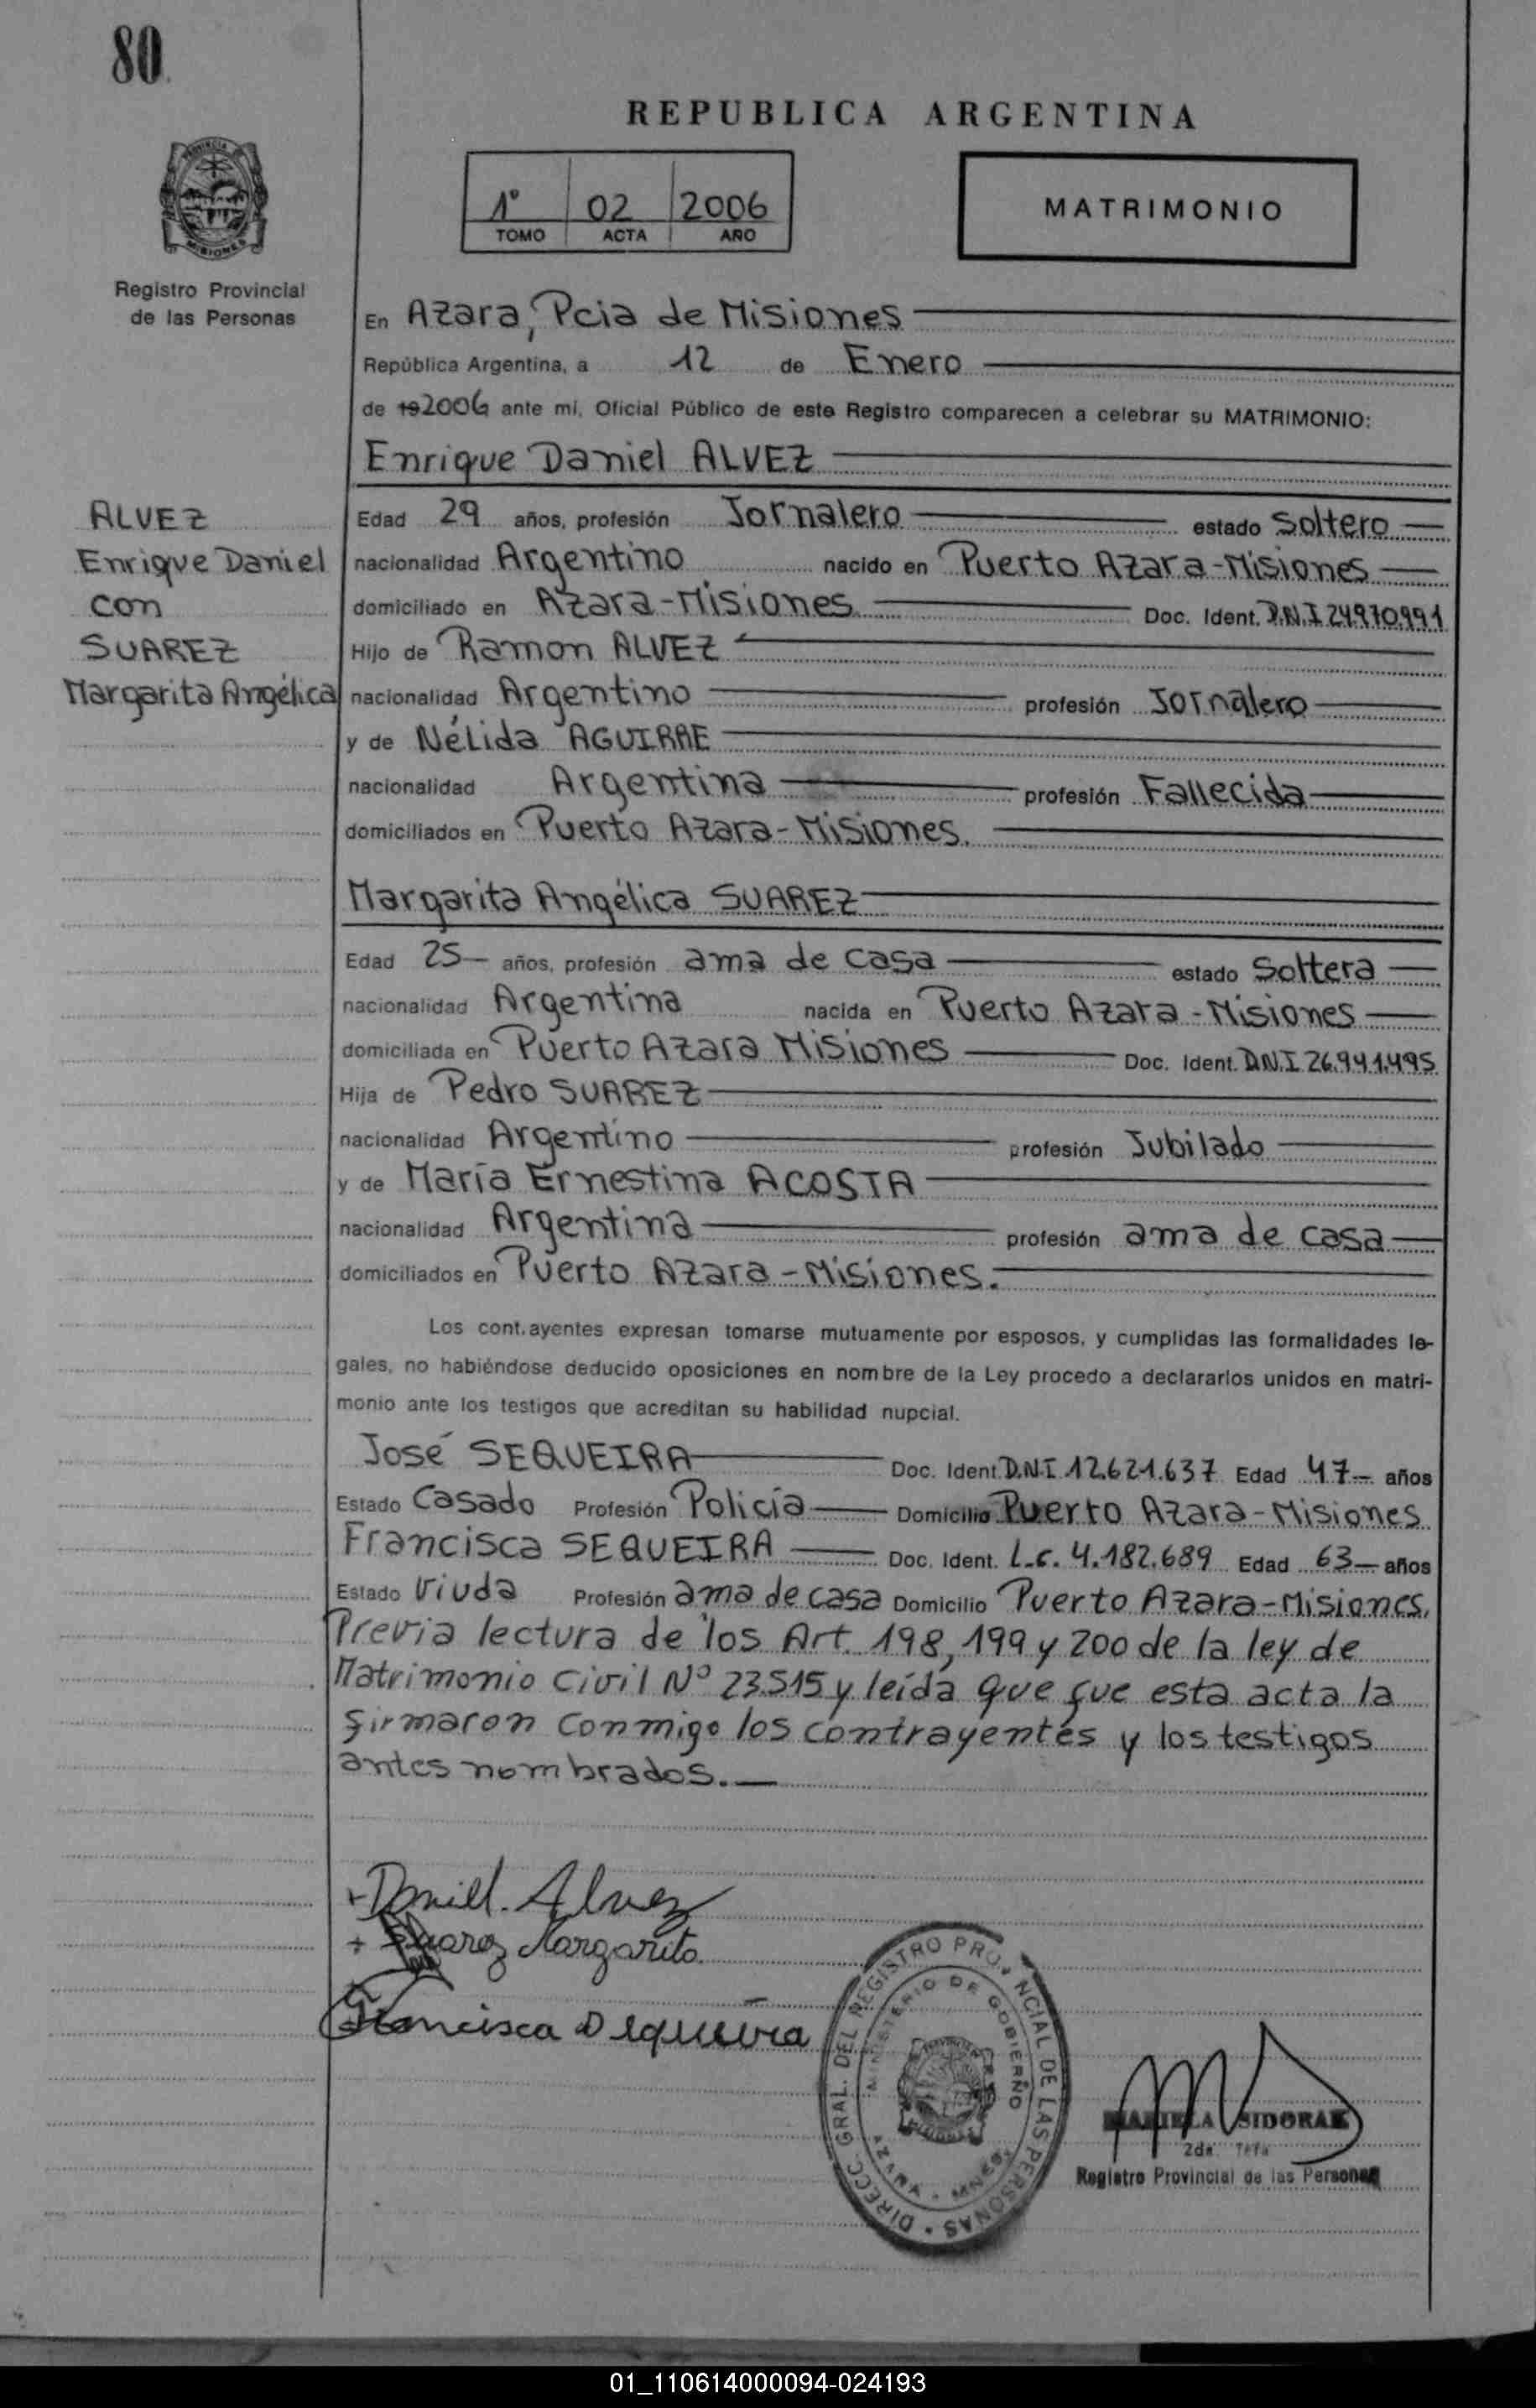 80
REPUBLICA ARGENTINA
1º 02 2006
TOMO ACTA AÑO
MATRIMONIO
Registro Provincial
de las Personas
En Azara, Pcia de Misiones
República Argentina, a 12 de Enero
de 192006 ante mí, Oficial Público de este Registro comparecen a celebrar su MATRIMONIO:
Enrique Daniel ALVEZ
ALVEZ
Enrique Daniel
con
SUAREZ
Margarita Angélica
Edad 29 años, profesión Jornalero estado Soltero
nacionalidad Argentino nacido en Puerto Azara-Misiones
domiciliado en Azara-Misiones Doc. Ident. D.N.I 24.970.991
Hijo de Ramon ALVEZ
nacionalidad Argentino profesión Jornalero
y de Nélida AGUIRRE
nacionalidad Argentina profesión Fallecida
domiciliados en Puerto Azara-Misiones.
Margarita Angélica SUAREZ
Edad 25 años, profesión ama de casa estado Soltera
nacionalidad Argentina nacida en Puerto Azara-Misiones
domiciliada en Puerto Azara Misiones Doc. Ident. D.N.I 26.941.495
Hija de Pedro SUAREZ
nacionalidad Argentino profesión Jubilado
y de María Ernestina ACOSTA
nacionalidad Argentina profesión ama de casa
domiciliados en Puerto Azara-Misiones.
Los cont.ayentes expresan tomarse mutuamente por esposos, y cumplidas las formalidades le-
gales, no habiéndose deducido oposiciones en nombre de la Ley procedo a declararlos unidos en matri-
monio ante los testigos que acreditan su habilidad nupcial.
José SEQUEIRA Doc. Ident. D.N.I 12.621.637 Edad 47 años
Estado Casado Profesión Policía Domicilio Puerto Azara-Misiones
Francisca SEQUEIRA Doc. Ident. L.C. 4.182.689 Edad 63 años
Estado Viuda Profesión ama de casa Domicilio Puerto Azara-Misiones.
Previa lectura de los Art. 198, 199 y 200 de la ley de
Matrimonio Civil Nº 23.515 y leída que fue esta acta la
firmaron conmigo los contrayentes y los testigos
antes nombrados.
+ Daniel. Alvez
+ Suarez Margarita
Francisca Sequeira
DIRECC. GRAL. DEL REGISTRO PROVINCIAL DE LAS PERSONAS
MINISTERIO DE GOBIERNO
AZARA - MNES
MARIELA SIDORAK
2da.
Registro Provincial de las Personas
01_110614000094-024193